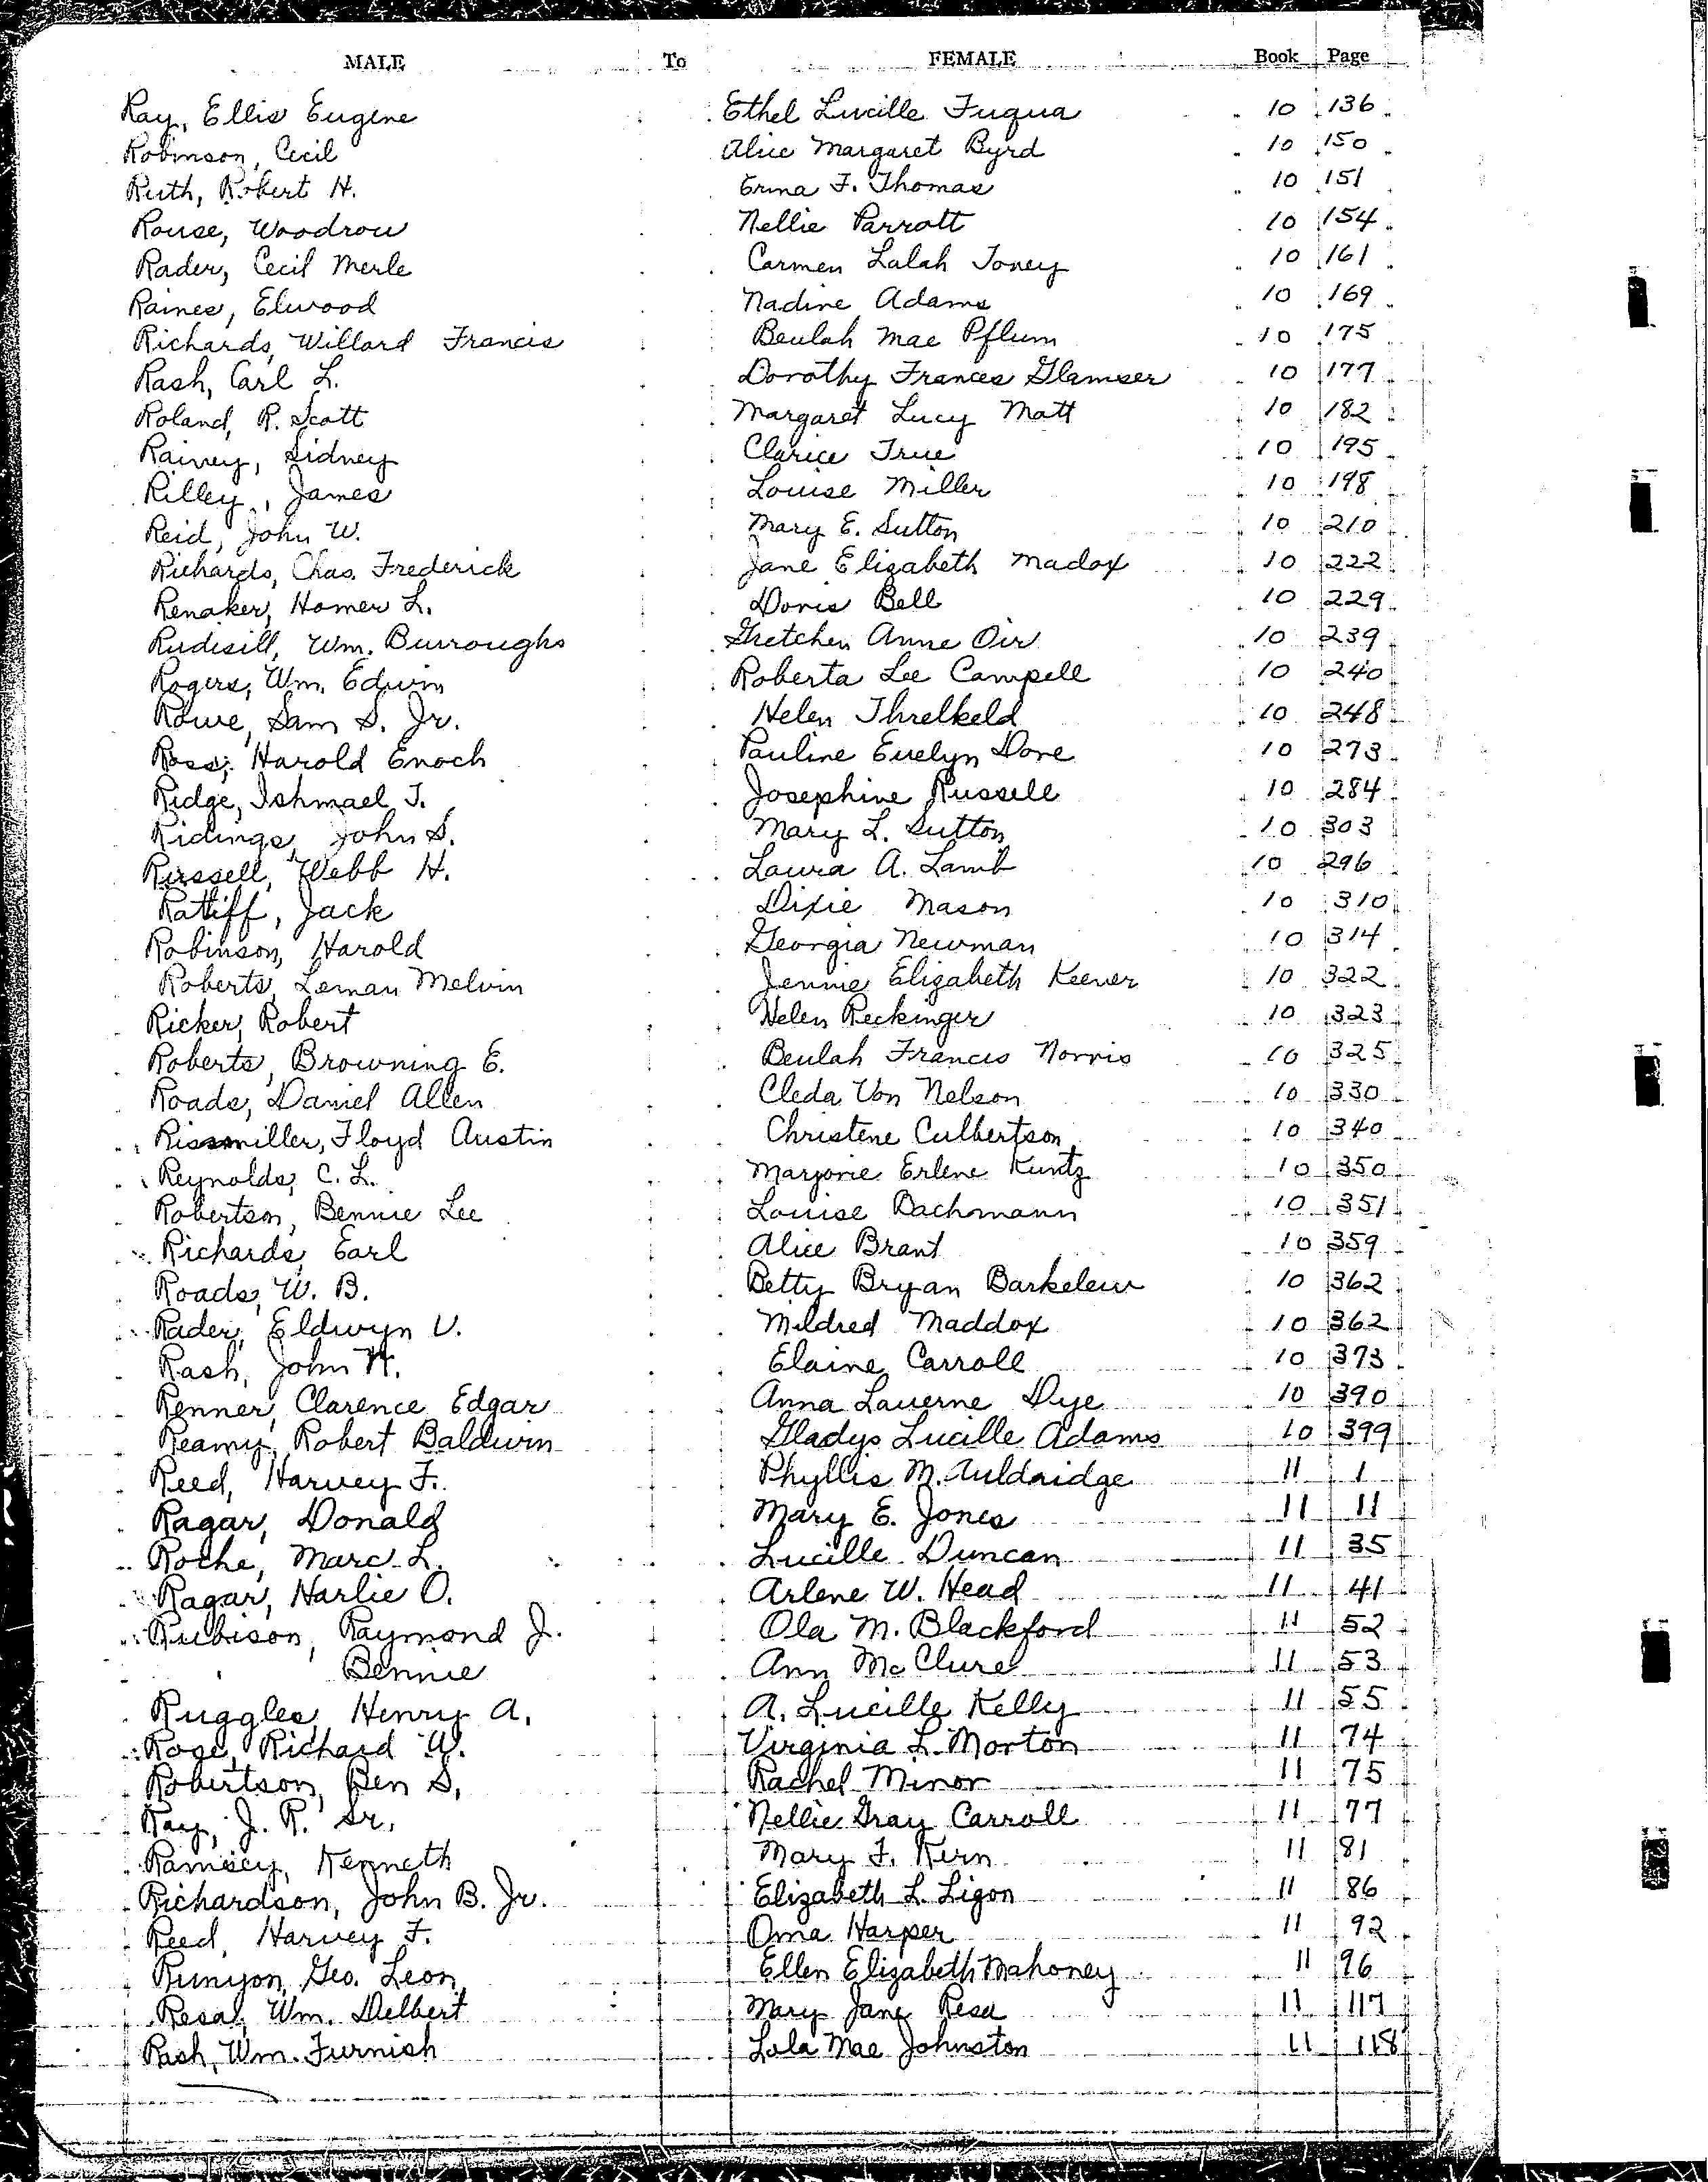 MALE To FEMALE Book Page
Ray, Ellis Eugene Ethel Lucille Fuqua 10 136
Robinson, Cecil Alice Margaret Byrd 10 150
Ruth, Robert H. Erma F. Thomas 10 151
Rouse, Woodrow Nellie Parrott 10 154
Rader, Cecil Merle Carmen Lalah Toney 10 161
Raines, Elwood Nadine Adams 10 169
Richards, Willard Francis Beulah Mae Pflum 10 175
Rash, Carl L. Dorothy Frances Glamser 10 177
Roland, R. Scott Margaret Lucy Mott 10 182
Rainey, Sidney Clarice True 10 195
Rilley, James Louise Miller 10 198
Reid, John W. Mary E. Sutton 10 210
Richards, Chas. Frederick Jane Elizabeth Madox 10 222
Renaker, Homer L. Doris Bell 10 229
Rudisill, Wm. Burroughs Gretchen Anne Oir 10 239
Rogers, Wm. Edwin Roberta Lee Campell 10 240
Rowe, Sam S. Jr. Helen Threlkeld 10 248
Ross, Harold Enoch Pauline Evelyn Dove 10 273
Ridge, Ishmael T. Josephine Russell 10 284
Ridings, John S. Mary L. Sutton 10 303
Russell, Webb H. Laura A. Lamb 10 296
Ratliff, Jack Dixie Mason 10 310
Robinson, Harold Georgia Newman 10 314
Roberts, Leman Melvin Jennie Elizabeth Keener 10 322
Ricker, Robert Helen Reckinger 10 323
Roberts, Browning E. Beulah Francis Norris 10 325
Roads, Daniel Allen Cleda Von Nelson 10 330
Rissmiller, Floyd Austin Christene Culbertson 10 340
Reynolds, C. L. Marjorie Erlene Kuntz 10 350
Robertson, Bennie Lee Louise Bachmann 10 351
Richards, Earl Alice Brant 10 359
Roads, W. B. Betty Bryan Barkelew 10 362
Rader, Eldwyn V. Mildred Maddox 10 362
Rash, John H. Elaine Carroll 10 373
Renner, Clarence Edgar Anna Laverne Dye 10 390
Reamy, Robert Baldwin Gladys Lucille Adams 10 399
Reed, Harvey F. Phyllis M. Auldridge 11 1
Ragar, Donald Mary E. Jones 11 11
Roche, Marc L. Lucille Duncan 11 35
Ragar, Harlie O. Arlene W. Head 11 41
Rubison, Raymond J. Ola M. Blackford 11 52
Bennie Ann McClure 11 53
Ruggles, Henry A. A. Lucille Kelly 11 55
Rose, Richard W. Virginia L. Morton 11 74
Robertson, Ben S. Rachel Minor 11 75
Ray, J. R. Sr. Nellie Gray Carroll 11 77
Ramsey, Kenneth Mary F. Kern 11 81
Richardson, John B. Jr. Elizabeth L. Ligon 11 86
Reed, Harvey F. Oma Harper 11 92
Runyon, Geo. Leon Ellen Elizabeth Mahoney 11 96
Resa, Wm. Delbert Mary Jane Resa 11 117
Rash, Wm. Furnish Lola Mae Johnston 11 118